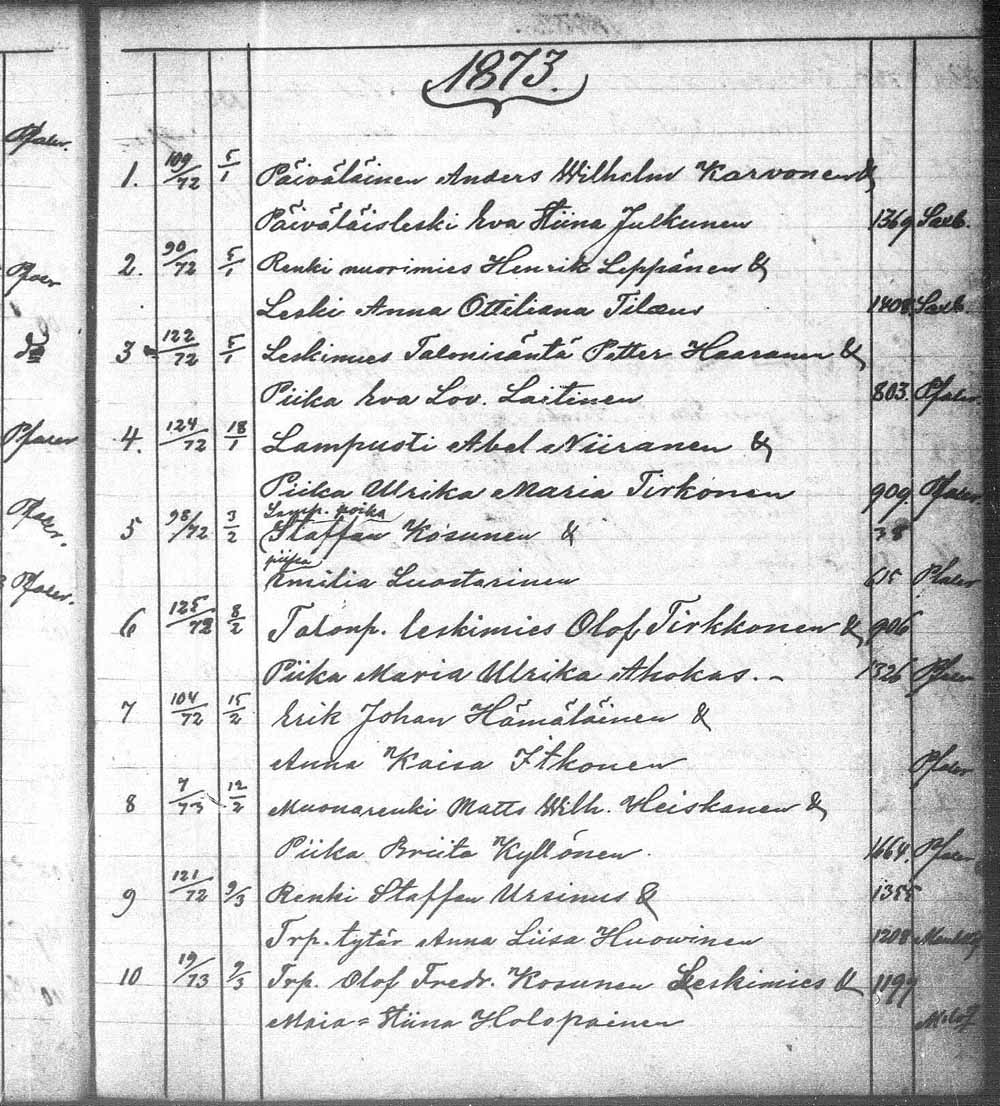 1873.
Pfaler.
1. 109/72 5/1 Päiväläinen Anders Wilhelm Karvonen &
Päiväläisleski Eva Stiina Julkunen 1369 Saxb.
2. 90/72 5/1 Renki nuorimies Henrik Leppänen &
Leski Anna Ottiliana Tilæus 1408 Saxb.
3 122/72 5/1 Leskimies Talonisäntä Petter Haaranen &
Piika Eva Lov. Laitinen 803. Pfaler.
Pfaler 4. 124/72 18/1 Lampuoti Abel Niiranen &
Piika Ulrika Maria Tirkonen 909. Pfaler
Lamp. poika
Pfaler. 5 98/72 3/2 Staffan Kosunen & 38
piika
Pfaler. Emilia Luostarinen 615 Pfaler
6 125/72 8/2 Talonp. leskimies Olof Tirkkonen & 906
Piika Maria Ulrika Ahokas. - 1326 Pfaler
7 104/72 15/2 Erik Johan Hämäläinen &
Anna Kaisa Itkonen Pfaler
8 7/73 12/2 Muonarenki Matts Wilh. Heiskanen &
Piika Briita Kyllönen. 1664. Pfaler
9 121/72 9/3 Renki Staffan Ursinus & 1355
Trp. tytär Anna Liisa Huowinen 1208
10 19/73 9/3 Trp. Olof Fredr. Kosunen Leskimies & 1199
Maia=Stiina Holopainen